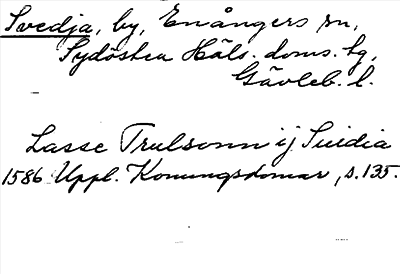 Svedja, by, Enångers sn,
Sydöstra Häls. doms. hg,
Gävleb. l.
Lasse Trulsonn ij Suidia
1586 Uppl. Konungsdomar, s. 135.